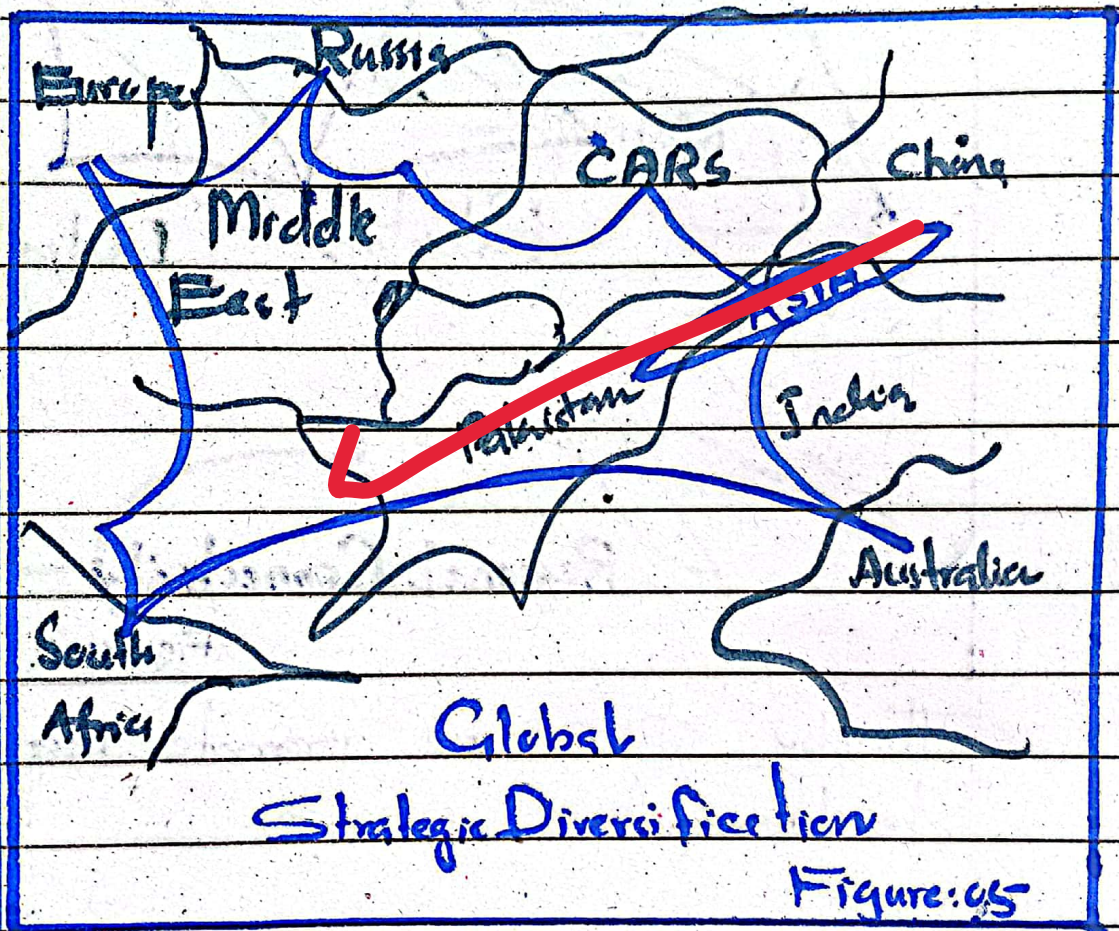 Russia
Europe
CARs
China
Middle
East
ASIA
Pakistan
India
Australia
South
Africa
Global
Strategic Diversification
Figure:05